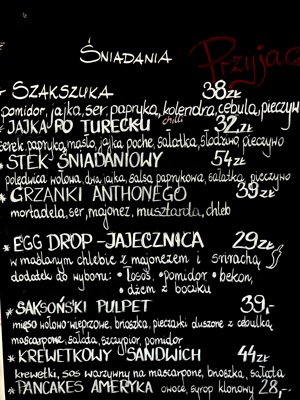 ŚNIADANIA
Przyjac
SZAKSZUKA 38zł
pomidor, jajka, ser, papryka, kolendra, cebula, pieczyw
* JAJKA PO TURECKU chilli 32,zł
serek, papryka, masło, jajka poche, sałatka, słodziwo, pieczywo
* STEK ŚNIADANIOWY 54zł
polędwica wołowa, dwa jajka, salsa paprykowa, sałatka, pieczywo
* GRZANKI ANTHONEGO 39zł
mortadela, ser, majonez, musztarda, chleb
* EGG DROP - JAJECZNICA 29zł
w maślanym chlebie z majonezem i srirachą
dodatek do wyboru: • łosoś, • pomidor • bekon,
• dżem z boczku
* SAKSOŃSKI PULPET 39,-
mięso wołowo-wieprzowe, brioszka, pieczarki duszone z cebulką
mascarpone, sałata, szczypior, pomidor
* KREWETKOWY SANDWICH 44zł
krewetki, sos warzywny na mascarpone, brioszka, sałata
* PANCAKES AMERYKA owoce, syrop klonowy 28,-